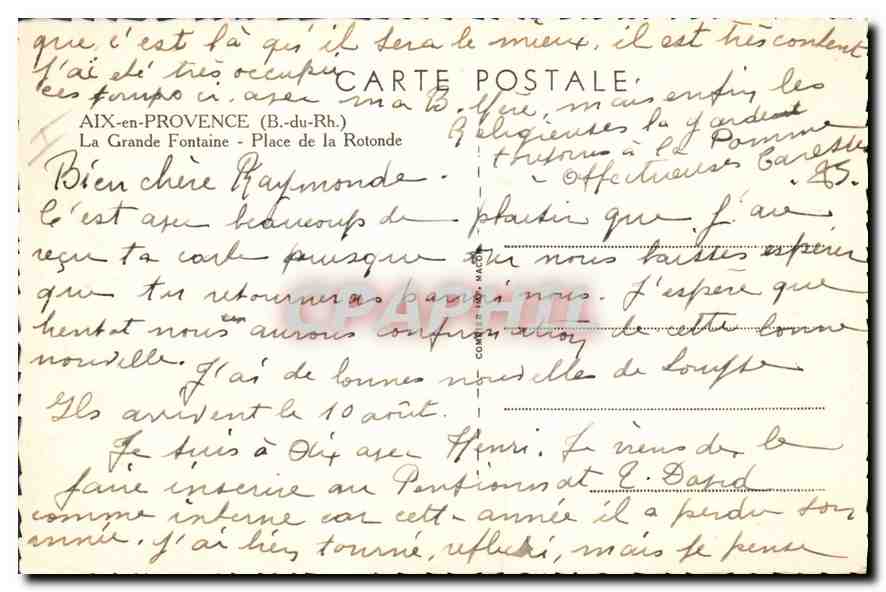 que, c'est là qu'il sera le mieux, il est très content
J'ai été très occupée
CARTE POSTALE
ces temps ci, avec ma B. Mère, mais enfin les
AIX-en-PROVENCE (B.-du-Rh.)
Religieuses la gardent
La Grande Fontaine - Place de la Rotonde
toujours à la Pomme
Bien chère Raymonde.
Affectueuses Caresses
C'est avec beaucoup de plaisir que j'ai
reçu ta carte puisque tu nous laisses espérer
que tu retourneras parmi nous. J'espère que
bentot nous en aurons confirmation de cette bonne
nouvelle. J'ai de bonnes nouvelle de
Ils arrivent le 10 août.
Je suis à Aix avec Henri. Je viens de le
faire inscrire au Pensionnat
comme interne car cette année il a perdu son
année. J'ai bien tourné, réfléchi, mais je pense
COMBIER IMP. MACON
CPAPHIL